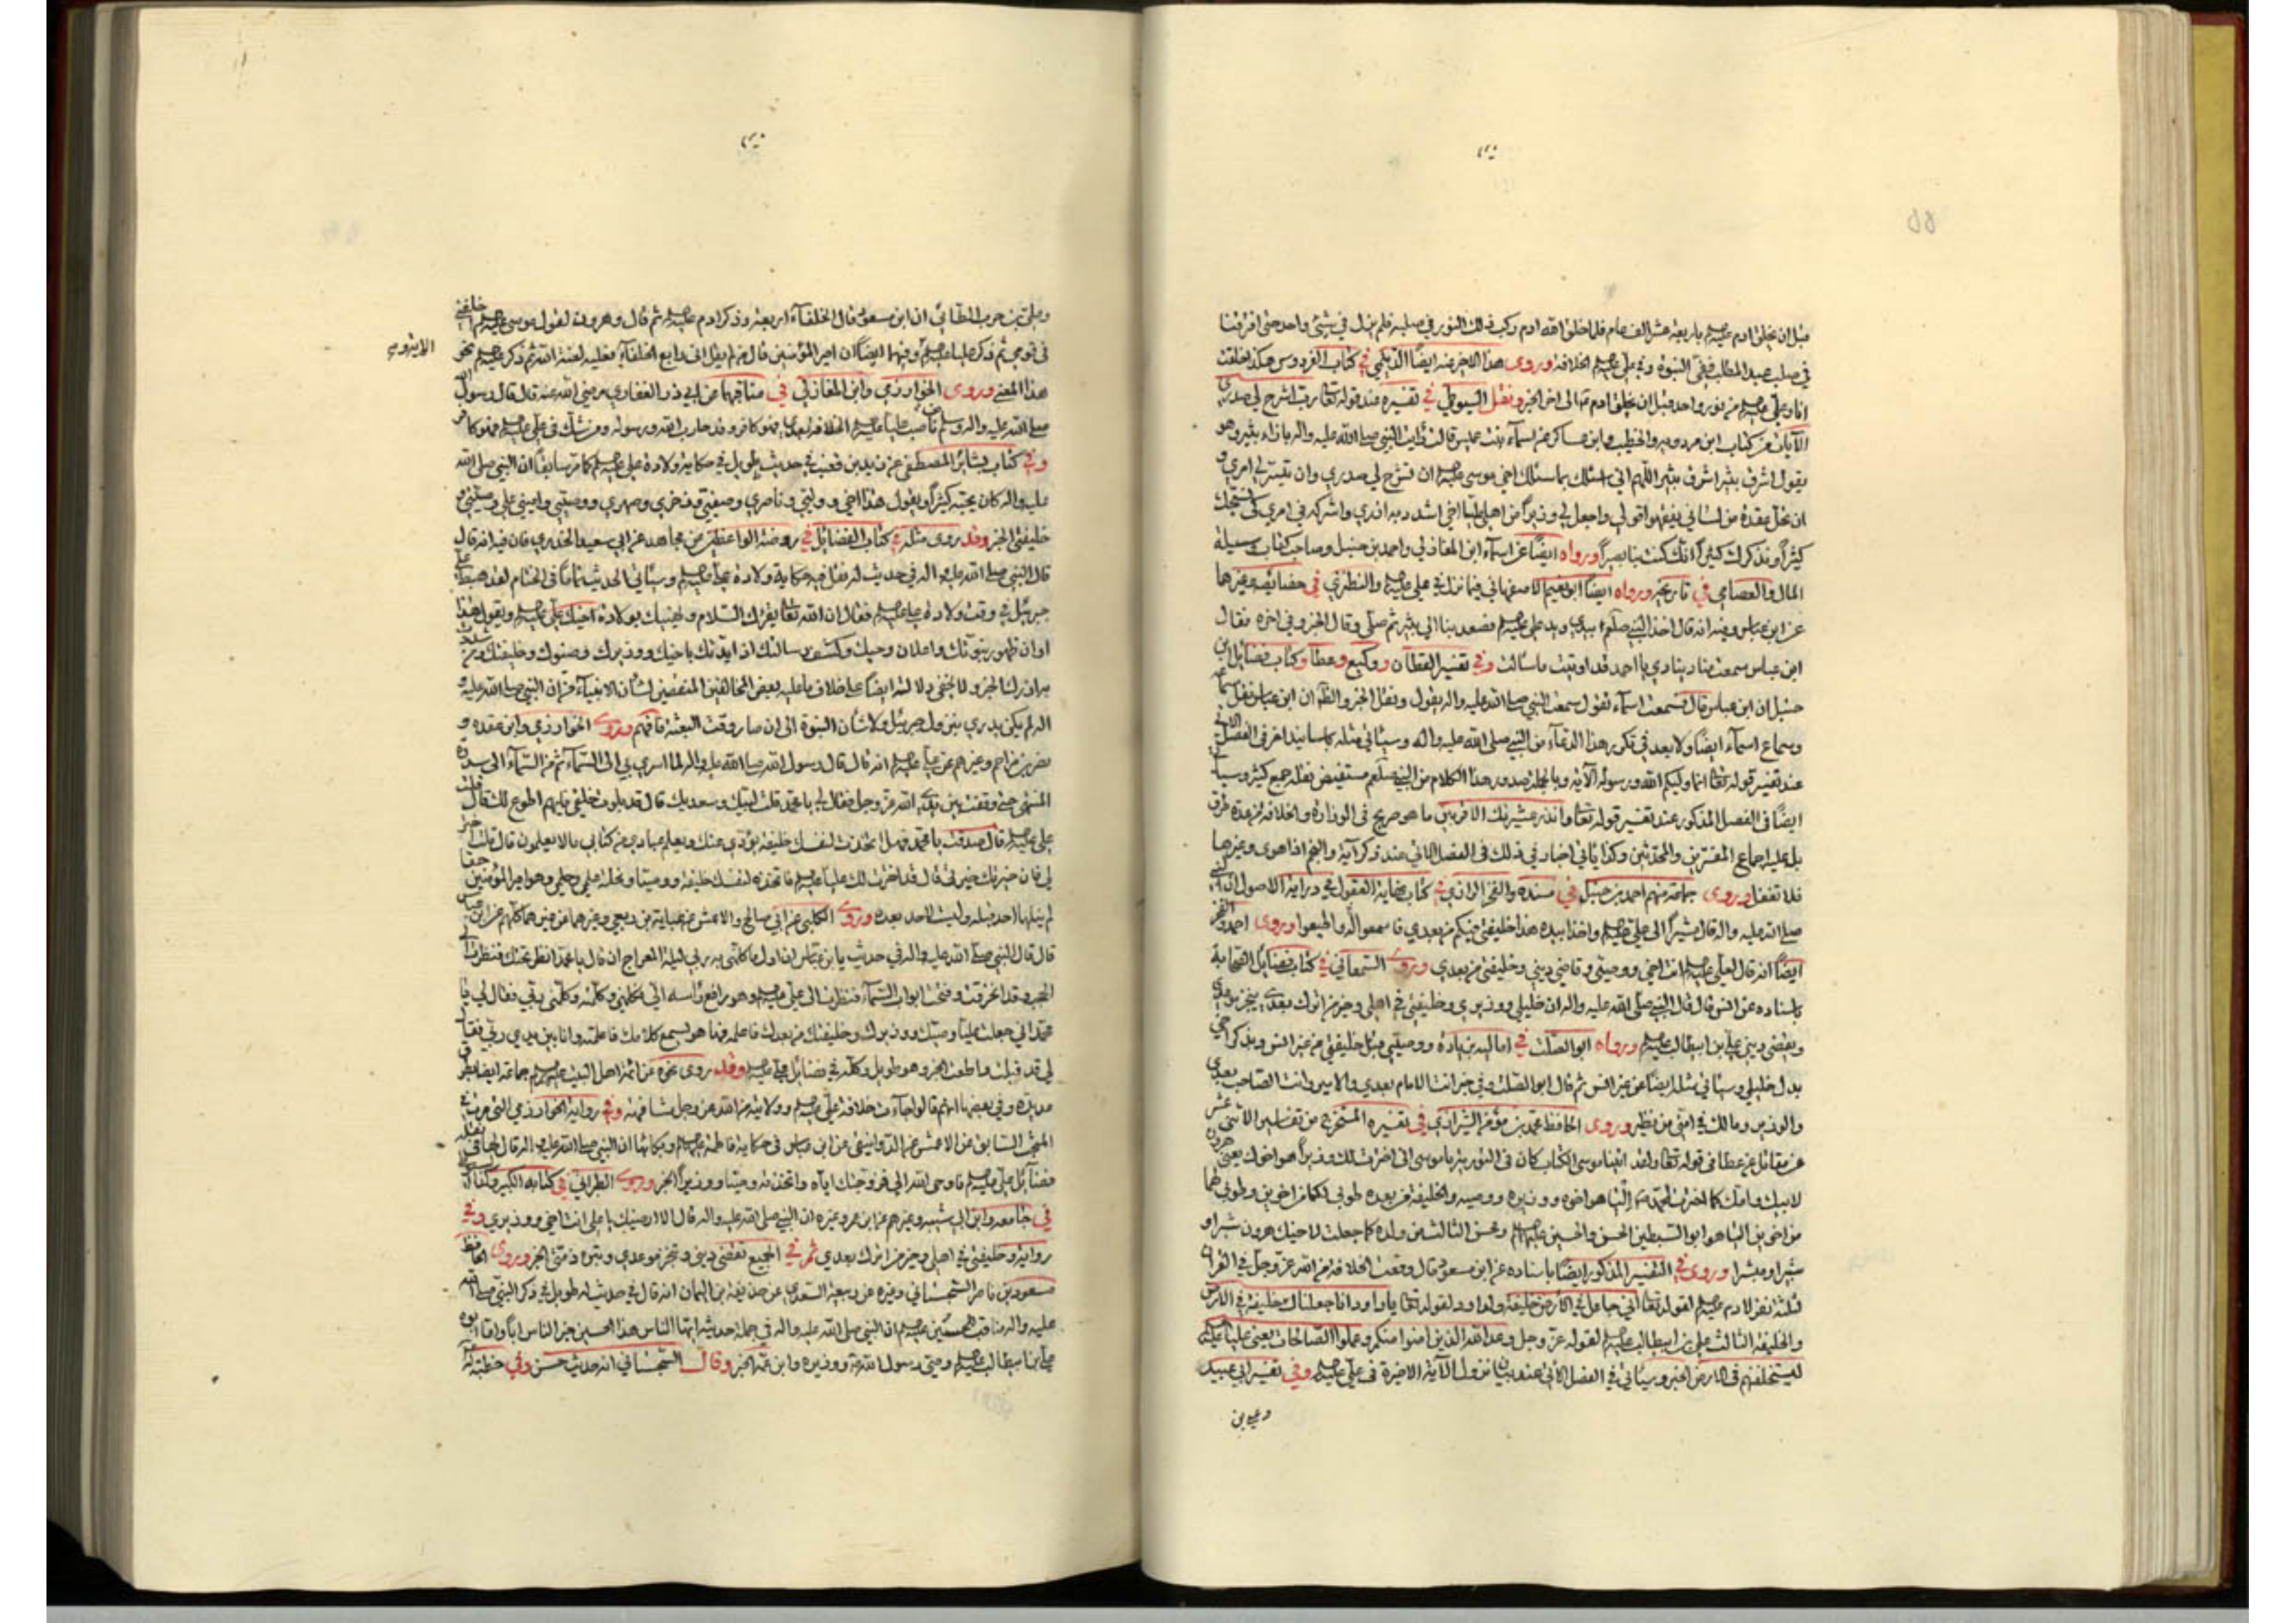 قبل ان يخلق ادم عليه السلم باربعة عشر الف عام فلما خلق الله ادم ركب ذلك النور في صلبه فلم يزل في شئ واحد حتى افترقنا
في صلب عبد المطلب ففي النبوة وفي علي عليه السلم الخلافة وروى هذا الاخر عنه ايضا الديلمي في كتاب الفردوس هكذا خلقت
انا وعلي عليه السلم من نور واحد قبل ان يخلق ادم تعالى اخر الخبر ونقل السيوطي في تفسيره عند قوله تعالى رب اشرح لي صدري
الآيات عن كتاب ابن مردويه والخطيب وابن عساكر عن اسمآء بنت عميس قالت رأيت النبي صلى الله عليه واله بازاء ثبير وهو
يقول اشرق ثبير اشرق ثبير اللهم اني اسئلك بما سئلك اخي موسى عليه السلم ان تشرح لي صدري وان تيسر لي امري و
ان تحل عقدة من لساني يفقهوا قولي واجعل لي وزيرا من اهلي عليا اخي اشدد به ازري واشركه في امري كي نسبحك
كثيرا ونذكرك كثيرا انك كنت بنا بصيرا ورواه ايضا عن اسمآء ابن المغازلي واحمد بن حنبل وصاحب كتاب وسيلة
المال والعصامي في تاريخه ورواه ايضا ابو نعيم الاصفهاني فيما نزل في علي عليه السلم والنطنزي في خصائصه وغيرها
عن ابن عباس وفيه انه قال اخذ النبي صلعم بيدي ويد علي عليه السلم فصعد بنا الى ثبير ثم صلى وقال الخبر وفي اخره فقال
ابن عباس سمعت مناد ينادي يا احمد قد اوتيت ما سئالت وفي تفسير القطان ووكيع وعطا وكتاب فضايل ابن
حنبل ان ابن عباس قال سمعت اسمآء تقول سمعت النبي صلى الله عليه واله يقول ونقل الخبر والظ ان ابن عباس نقل
وسماع اسمآء ايضا ولا بعد في تكرر هذا الدعآء من النبي صلى الله عليه واله وسيأتي مثله باسانيد اخر في الفصل الاتي
عند تفسير قوله تعالى انما وليكم الله ورسوله الآية وبالجملة صدور هذا الكلام من النبي صلعم مستفيض نقله جمع كثير وسيأتي
ايضا في الفصل المذكور عند تفسير قوله تعالى وانذر عشيرتك الاقربين ما هو صريح في الوزارة والخلافة من عدة طرق
بل عليه اجماع المفسرين والمحدثين وكذا يأتي اخبار في ذلك في الفصل الثاني عند ذكر آية والنجم اذا هوى وغيرها
فلا تغفل وروى جماعة منهم احمد بن حنبل في مسنده والفخر الرازي في كتاب نهاية العقول في دراية الاصول ان النبي
صلى الله عليه واله قال مشيرا الى علي عليه السلم واخذا بيده هذا خليفتي فيكم من بعدي فاسمعوا له واطيعوا وروى احمد والفخر
ايضا انه قال لعلي عليه السلم انت اخي ووصيي وقاضي ديني وخليفتي من بعدي وروى السمعاني في كتاب فضايل الصحابة
باسناده عن انس قال قال النبي صلى الله عليه واله ان خليلي ووزيري وخليفتي في اهلي وخير من اترك بعدي ينجز موعدي
ويقضي ديني علي بن ابيطالب عليه السلم ورواه ابو الصلت في اماليه بزيادة ووصيي قبل خليفتي عن غير انس وبذكر اخي
بدل خليلي وسيأتي مثله ايضا عن غير انس ثم قال ابو الصلت وفي خبر انت الامام بعدي والامير وانت الصاحب بعدي
والوزير ومالك في امتي من نظير وروى الحافظ محمد بن مؤمن الشيرازي في تفسيره المستخرج من تفاسير الاثنى عشر
عن مقاتل عن عطا في قوله تعالى ولقد اتينا موسى الكتاب كان في التورية يا موسى اني اخترتك ووزيرا هو اخوك يعني هرون
لابيك وامك كما اخترت لمحمد اليا هو اخوه ووزيره ووصيه والخليفة من بعده طوبى لكما من اخوين وطوبى لهما
من اخوين اليا هو ابو السبطين الحسن والحسين عليهما السلم ومحسن الثالث من ولده كما جعلت لاخيك هرون شبرا و
شبيرا ومشبرا وروى في التفسير المذكور ايضا باسناده عن ابن مسعود قال وقعت الخلافة من الله عز وجل في القرآن
لثلثة نفر لادم عليه السلم لقوله تعالى اني جاعل في الارض خليفة ولداود لقوله تعالى يا داود انا جعلناك خليفة في الارض
والخليفة الثالث علي بن ابيطالب عليه السلم لقوله عز وجل وعد الله الذين امنوا منكم وعملوا الصالحات يعني عليا عليه السلم
ليستخلفنهم في الارض الخبر وسيأتي في الفصل الاتي عند بيان نزول الآية الاخيرة في علي عليه السلم وفي تفسير ابي عبيد
وعلي بن
وعلي بن حرب الطائي ان ابن مسعود قال الخلفآء اربعة وذكر ادم عليه السلم ثم قال وهرون لقول موسى عليه السلم اخلفني
في قومي ثم ذكر عليا عليه السلم وفيهما ايضا ان امير المؤمنين قال من لم يقل اني رابع الخلفآء فعليه لعنة الله ثم ذكر عليه السلم نحو
هذا المعنى وروى الخوارزمي وابن المغازلي في مناقبهما عن ابي ذر الغفاري رضي الله عنه قال قال رسول الله
صلى الله عليه واله وسلم من ناصب عليا عليه السلم الخلافة بعدي فهو كافر وقد حارب الله ورسوله ومن شك في علي عليه السلم فهو كافر
وفي كتاب بشائر المصطفى عن يزيد بن قعنب في حديث طويل في حكاية ولادة علي عليه السلم كما مر سابقا ان النبي صلى الله
عليه واله كان يحبه كثيرا ويقول هذا اخي ووليي وناصري وصفيي وذخري وصهري ووصيي واميني على وصيتي و
خليفتي الخبر وقد روى مثله في كتاب الفضايل في روضة الواعظين عن مجاهد عن ابي سعيد الخدري فان فيه انه قال
قال النبي صلى الله عليه واله في حديث له نقل فيه حكاية ولادة علي عليه السلم وسيأتي الحديث تماما في الختام لقد هبط علي
جبرئيل في وقت ولادة علي عليه السلم فقال ان الله تعالى يقرئك السلام ويهنيك بولادة اخيك علي عليه السلم ويقول هذا
اوان ظهور نبوتك واعلان وحيك وكشف رسالتك اذ ايدتك باخيك ووزيرك وصنوك وخليفتك ومن شددت
به ازرك الخبر ولا يخفى دلالته ايضا على خلاف ما عليه بعض المخالفين المنقصين لشأن الانبيآء من ان النبي صلى الله عليه و
اله لم يكن يدري بنزول جبرئيل ولا شأن النبوة الى ان صار وقت البعثة فافهم وروى الخوارزمي وابن عقده و
نصر بن مزاحم وغيرهم عن علي عليه السلم انه قال قال رسول الله صلى الله عليه واله لما اسري بي الى السمآء ثم من السمآء الى سدرة
المنتهى حتى وقفت بين يدي الله عز وجل فقال لي يا محمد قلت لبيك وسعديك قال قد بلوت خلقي فايهم اطوع لك قال قلت
علي عليه السلم قال صدقت يا محمد فهل اتخذت لنفسك خليفة يؤدي عنك ويعلم عبادي من كتابي ما لا يعلمون قال قلت اختر
لي فان خيرتك خيرتي قال قد اخترت لك عليا عليه السلم فاتخذه لنفسك خليفة ووصيا ونحلته علمي وحلمي وهو امير المؤمنين حقا
لم ينلها احد قبله وليست لاحد بعده وروى الكلبي عن ابي صالح والاعمش عن عباية بن ربعي وغيرهما عن غيرهما كلهم عن ابن عباس
قال قال النبي صلى الله عليه واله في حديث يا بن عباس ان اول ما كلمني به ربي ليلة المعراج ان قال يا محمد انظر تحتك فنظرت الى
الحجب قد انخرقت وفتحت ابواب السمآء فنظرت الى علي عليه السلم وهو رافع رأسه الي فكلمني وكلمته وكلمني ربي فقال لي يا
محمد اني جعلت عليا وصيك ووزيرك وخليفتك من بعدك فاعلمه فها هو يسمع كلامك فاعلمته وانا بين يدي ربي فقال
لي قد قبلت واطعت الخبر وهو طويل وكله في فضائل علي عليه السلم وقد روى نحوه عن ائمة اهل البيت عليهم السلم جماعة ايضا بطرق
عديدة وفي بعضها انهم قالوا جآءت خلافة علي عليه السلم وولايته من الله عز وجل مشافهة وفي رواية الخوارزمي التي مرت في
المبحث السابق عن الاعمش عن الدوانيقي عن ابن عباس في حكاية فاطمة عليها السلم وبكائها ان النبي صلى الله عليه واله قال لها في نقله
فضآئل علي عليه السلم فاوحى الله الي فزوجتك اياه واتخذته وصيا ووزيرا الخبر وروى الطبراني في كتابه الكبير وكذا
في جامعه وابن ابي شيبه وغيرهم عن ابن عمر وغيره ان النبي صلى الله عليه واله قال الا ارضيك يا علي انت اخي ووزيري وفي
رواية وخليفتي في اهلي وخير من اترك بعدي ثم في الجميع تقضي ديني وتنجز موعدي وتبرء ذمتي الخبر وروى الحافظ
مسعود بن ناصر السجستاني وغيره عن ربيعة السعدي عن حذيفة بن اليمان انه قال في حديث له طويل في ذكر النبي صلى الله
عليه واله مناقب الحسين عليه السلم ان النبي صلى الله عليه واله قال في جملة حديثه ايها الناس هذا الحسين خير الناس ابا واما ابوه
علي بن ابيطالب عليه السلم وصي رسول الله ووزيره وابن عمه الخبر وقال السجستاني انه حديث حسن وفي خطبة له